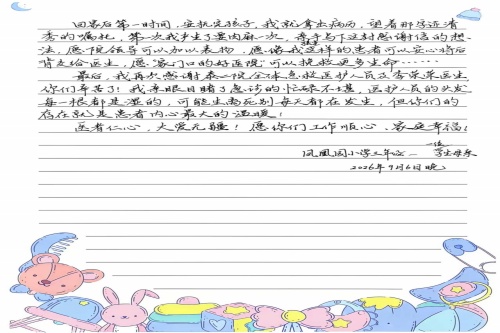 回家后第一时间，安抚完孩子，我就拿出病历，望着那字迹清
秀的嘱托，第一次我产生了要肉麻一次，亲手写下这封感谢信的想
法，愿院领导可以加以表扬，愿像我这样的患者可以安心将后
背交给医生，愿家门口的好医院可以挽救更多生命……
最后，我再次感谢 院全体急救医护人员及李荣荣医生
你们辛苦了！我亲眼目睹了急诊的忙碌不堪，医护人员的头发
每一根都是湿的，可能生离死别每天都在发生，但你们的
存在就是患者内心最大的温暖！
医者仁心，大爱无疆！愿你们工作顺心、家庭幸福！
凤凰园小学 一位学生母亲
2026年 月6日晚